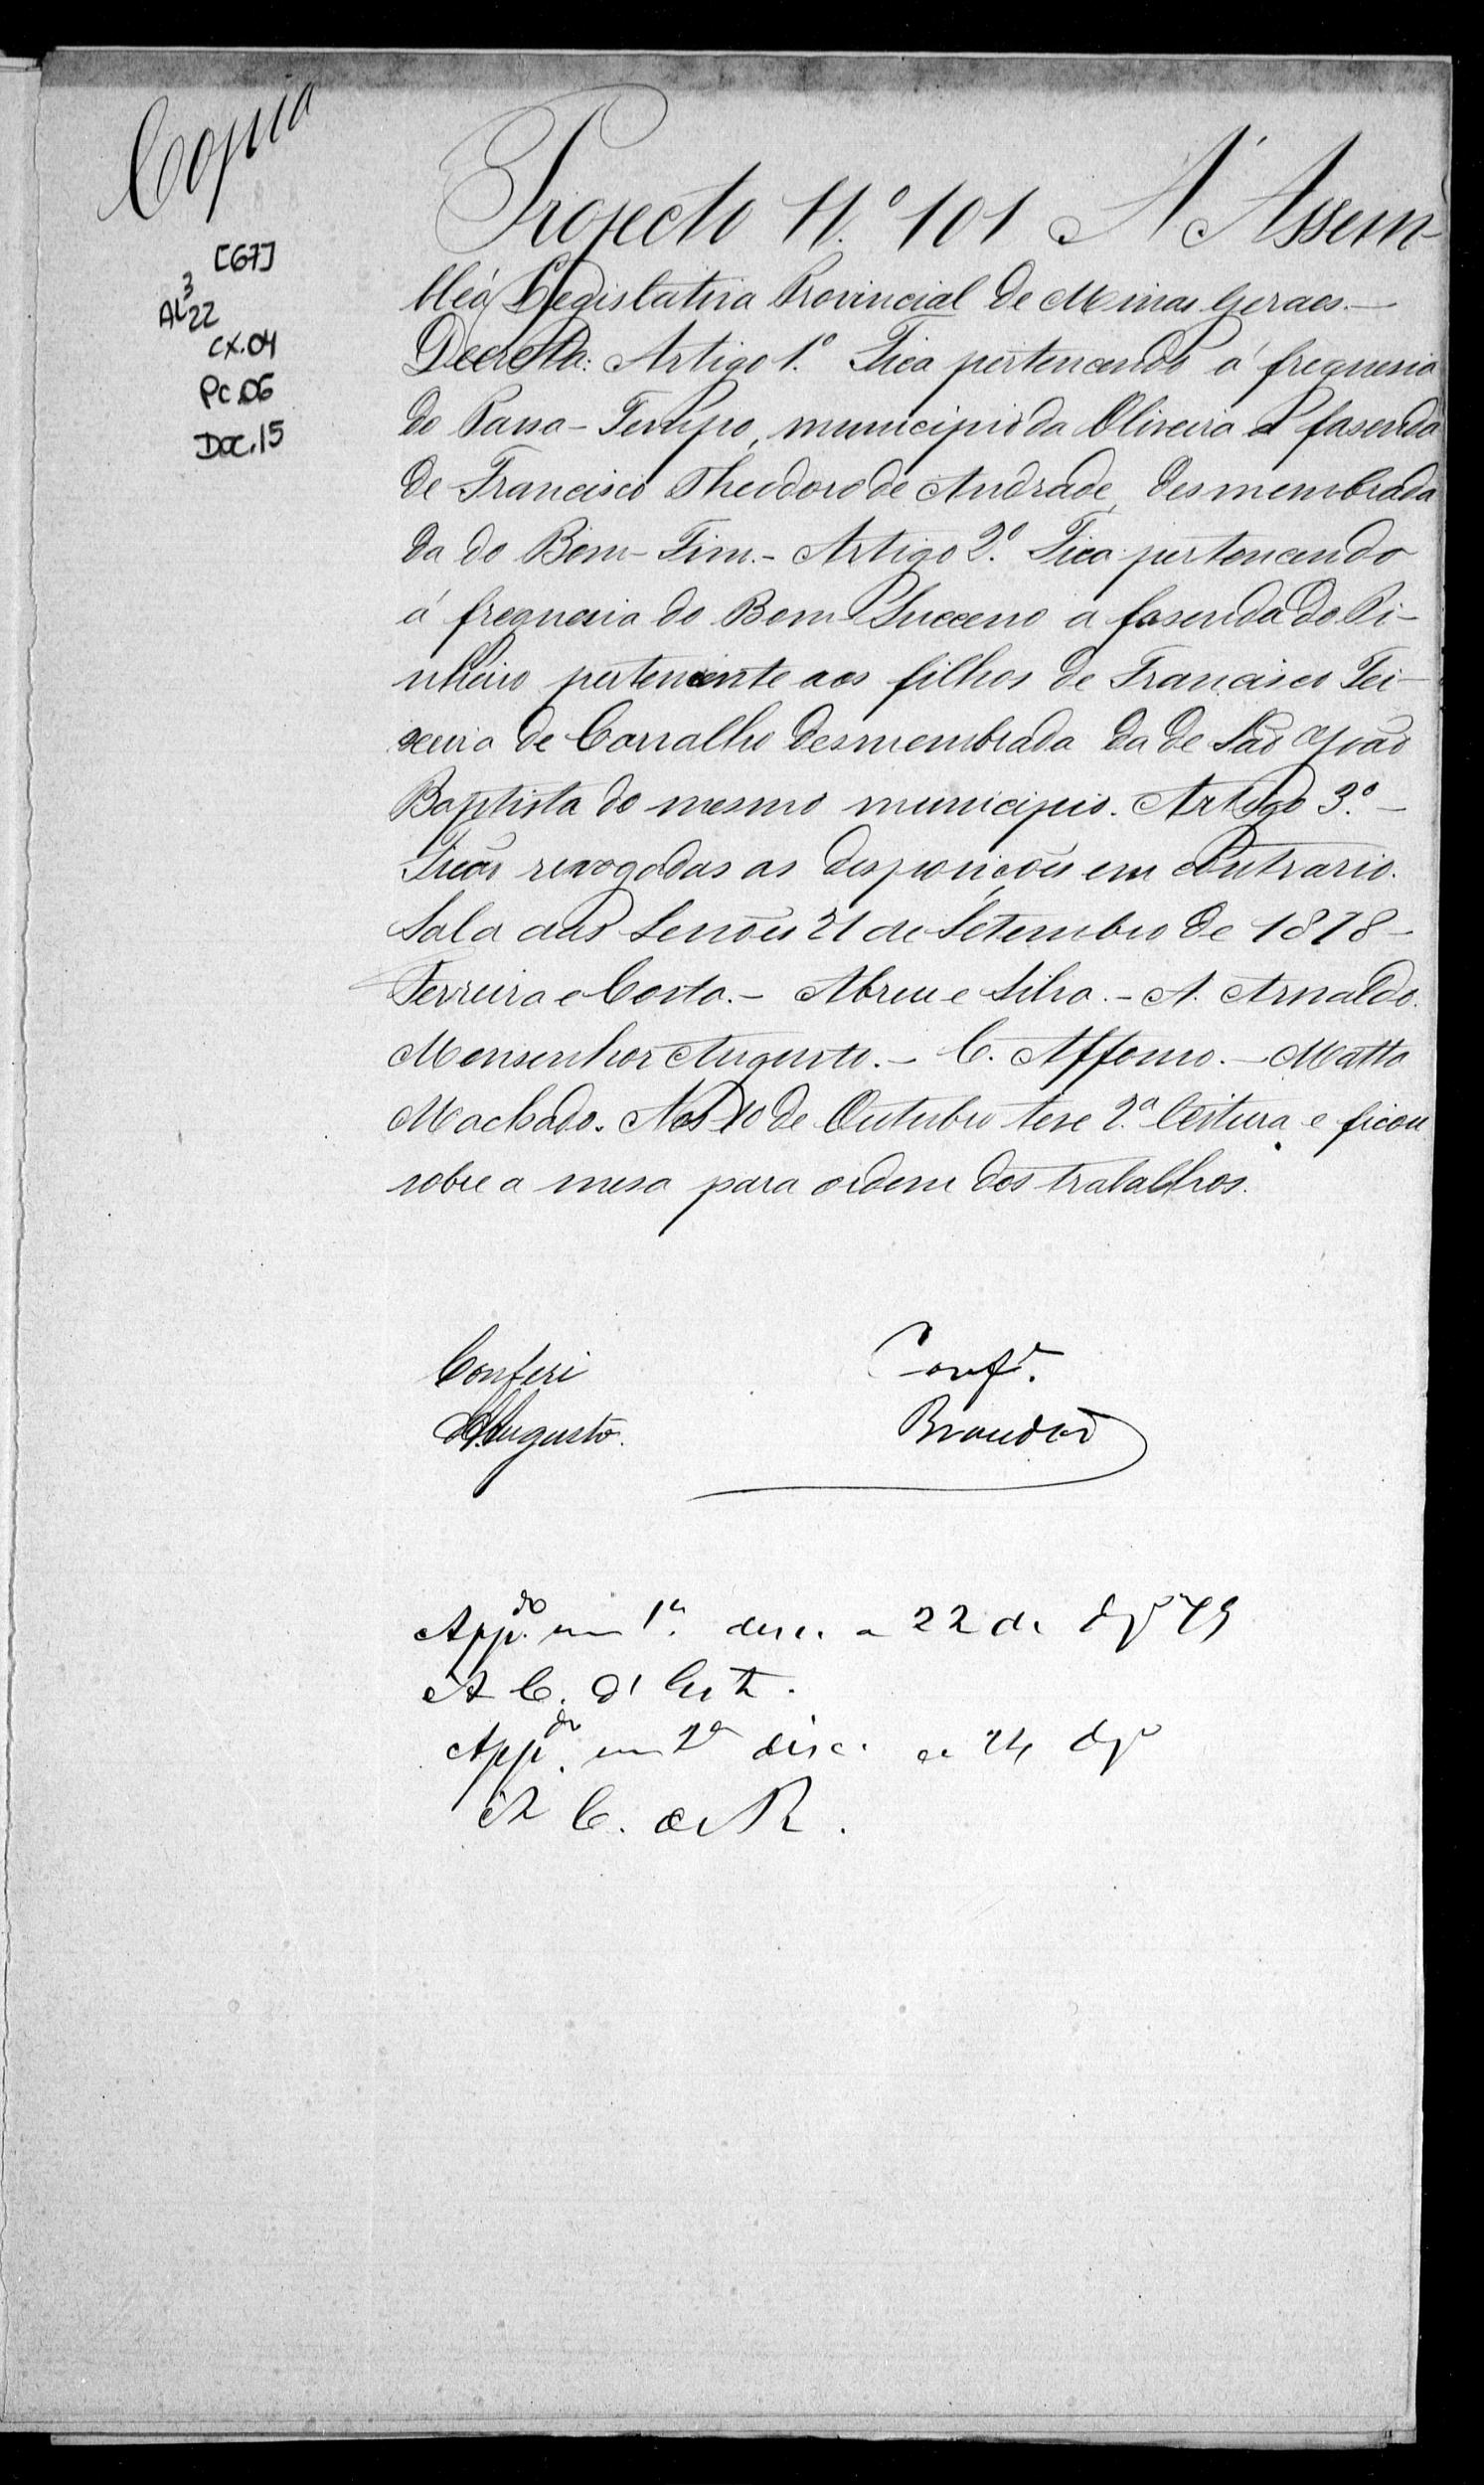 Copia
[67]
AL 3 22
CX.04
PC.06
DOC.15
Projecto N.º 101 A Assem-
bléa Legislativa Provincial de Minas Geraes.—
Decreta: Artigo 1.º Fica pertencendo á freguesia
do Passa-Tempo, municipio da Oliveira a fasenda
de Francisco Theodoro de Andrade, desmembrada
da do Bom-Fim.- Artigo 2.º Fica pertencendo
á freguesia do Bom Successo a fasenda do Pi-
nheiro pertencente aos filhos de Francisco Tei-
xeira de Carvalho desmembrada da de São João
Baptista do mesmo municipio. Artigo 3.º—
Ficão revogadas as desposições em contrario.
Sala das Sessões 21 de Setembro de 1878—
Ferreira e Costa.- Abreu e Silva.- A. Arnaldo.
Monsenhor Augusto.- C. Affonso.- Matta
Machado. Aos 10 de Outubro teve 2.ª leitura e ficou
sobre a mesa para ordem dos trabalhos.
Conferi Conf.e
Augusto. Brandão
App.do em 1.ª disc. a 22 de 79
A C. d'
App.do em 2ª disc. a 24
A C. de R.